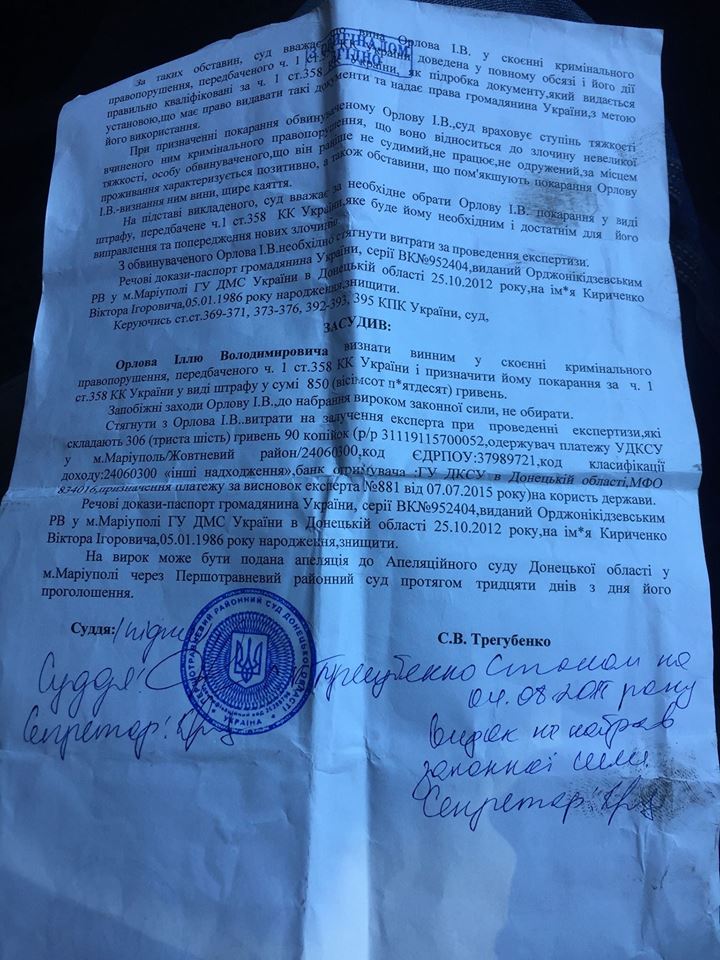 З ОРИГІНАЛОМ
ЗГІДНО
За таких обставин, суд вважає, що вина Орлова І.В. у скоєнні кримінального
правопорушення, передбаченого ч. 1 ст.358 КК України доведена у повному обсязі і його дії
правильно кваліфіковані за ч. 1 ст.358 України, як підробка документу,який видається
установою,що має право видавати такі документи та надає права громадянина України,з метою
його використання.
При призначенні покарання обвинуваченому Орлову І.В.,суд враховує ступінь тяжкості
вчиненого ним кримінального правопорушення, що воно відноситься до злочину невеликої
тяжкості, особу обвинуваченого,що він раніше не судимий,не працює,не одружений,за місцем
проживання характеризується позитивно, а також обставини, що пом'якшують покарання Орлову
І.В.-визнання ним вини, щире каяття.
На підставі викладеного, суд вважає за необхідне обрати Орлову І.В. покарання у виді
штрафу, передбачене ч.1 ст.358 КК України,яке буде йому необхідним і достатнім для його
виправлення та попередження нових злочинів.
З обвинуваченого Орлова І.В.необхідно стягнути витрати за проведення експертизи.
Речові докази-паспорт громадянина України, серії ВК№952404,виданий Орджонікідзевським
РВ у м.Маріуполі ГУ ДМС України в Донецькій області 25.10.2012 року,на ім*я Кириченко
Віктора Ігоровича,05.01.1986 року народження,знищити.
Керуючись ст.ст.369-371, 373-376, 392-393, 395 КПК України, суд,
ЗАСУДИВ:
Орлова Іллю Володимировича визнати винним у скоєнні кримінального
правопорушення, передбаченого ч. 1 ст.358 КК України і призначити йому покарання за ч. 1
ст.358 КК України у виді штрафу у сумі 850 (вісімсот п*ятдесят) гривень.
Запобіжні заходи Орлову І.В.,до набрання вироком законної сили, не обирати.
Стягнути з Орлова І.В..витрати на залучення експерта при проведенні експертизи,які
складають 306 (триста шість) гривень 90 копійок (р/р 31119115700052,одержувач платежу УДКСУ
у м.Маріуполь/Жовтневий район/24060300,код ЄДРПОУ:37989721,код класифікації
доходу:24060300 «інші надходження»,банк отримувача :ГУ ДКСУ в Донецькій області,МФО
834016,призначення платежу за висновок експерта №881 від 07.07.2015 року)на користь держави.
Речові докази-паспорт громадянина України, серії ВК№952404,виданий Орджонікідзевським
РВ у м.Маріуполі ГУ ДМС України в Донецькій області 25.10.2012 року,на ім*я Кириченко
Віктора Ігоровича,05.01.1986 року народження,знищити.
На вирок може бути подана апеляція до Апеляційного суду Донецької області у
м.Маріуполі через Першотравневий районний суд протягом тридцяти днів з дня його
проголошення.
Суддя:/підпис
С.В. Трегубенко
ПЕРШОТРАВНЕВИЙ РАЙОННИЙ СУД ДОНЕЦЬКОЇ ОБЛАСТІ
УКРАЇНА
Суддя: Трегубенко Станом на
04.08 року
Секретар: Вирок не набрав
законної сили
Секретар: